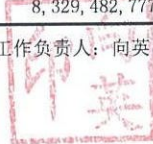 8,329,482,777
工作负责人：向英
向英印